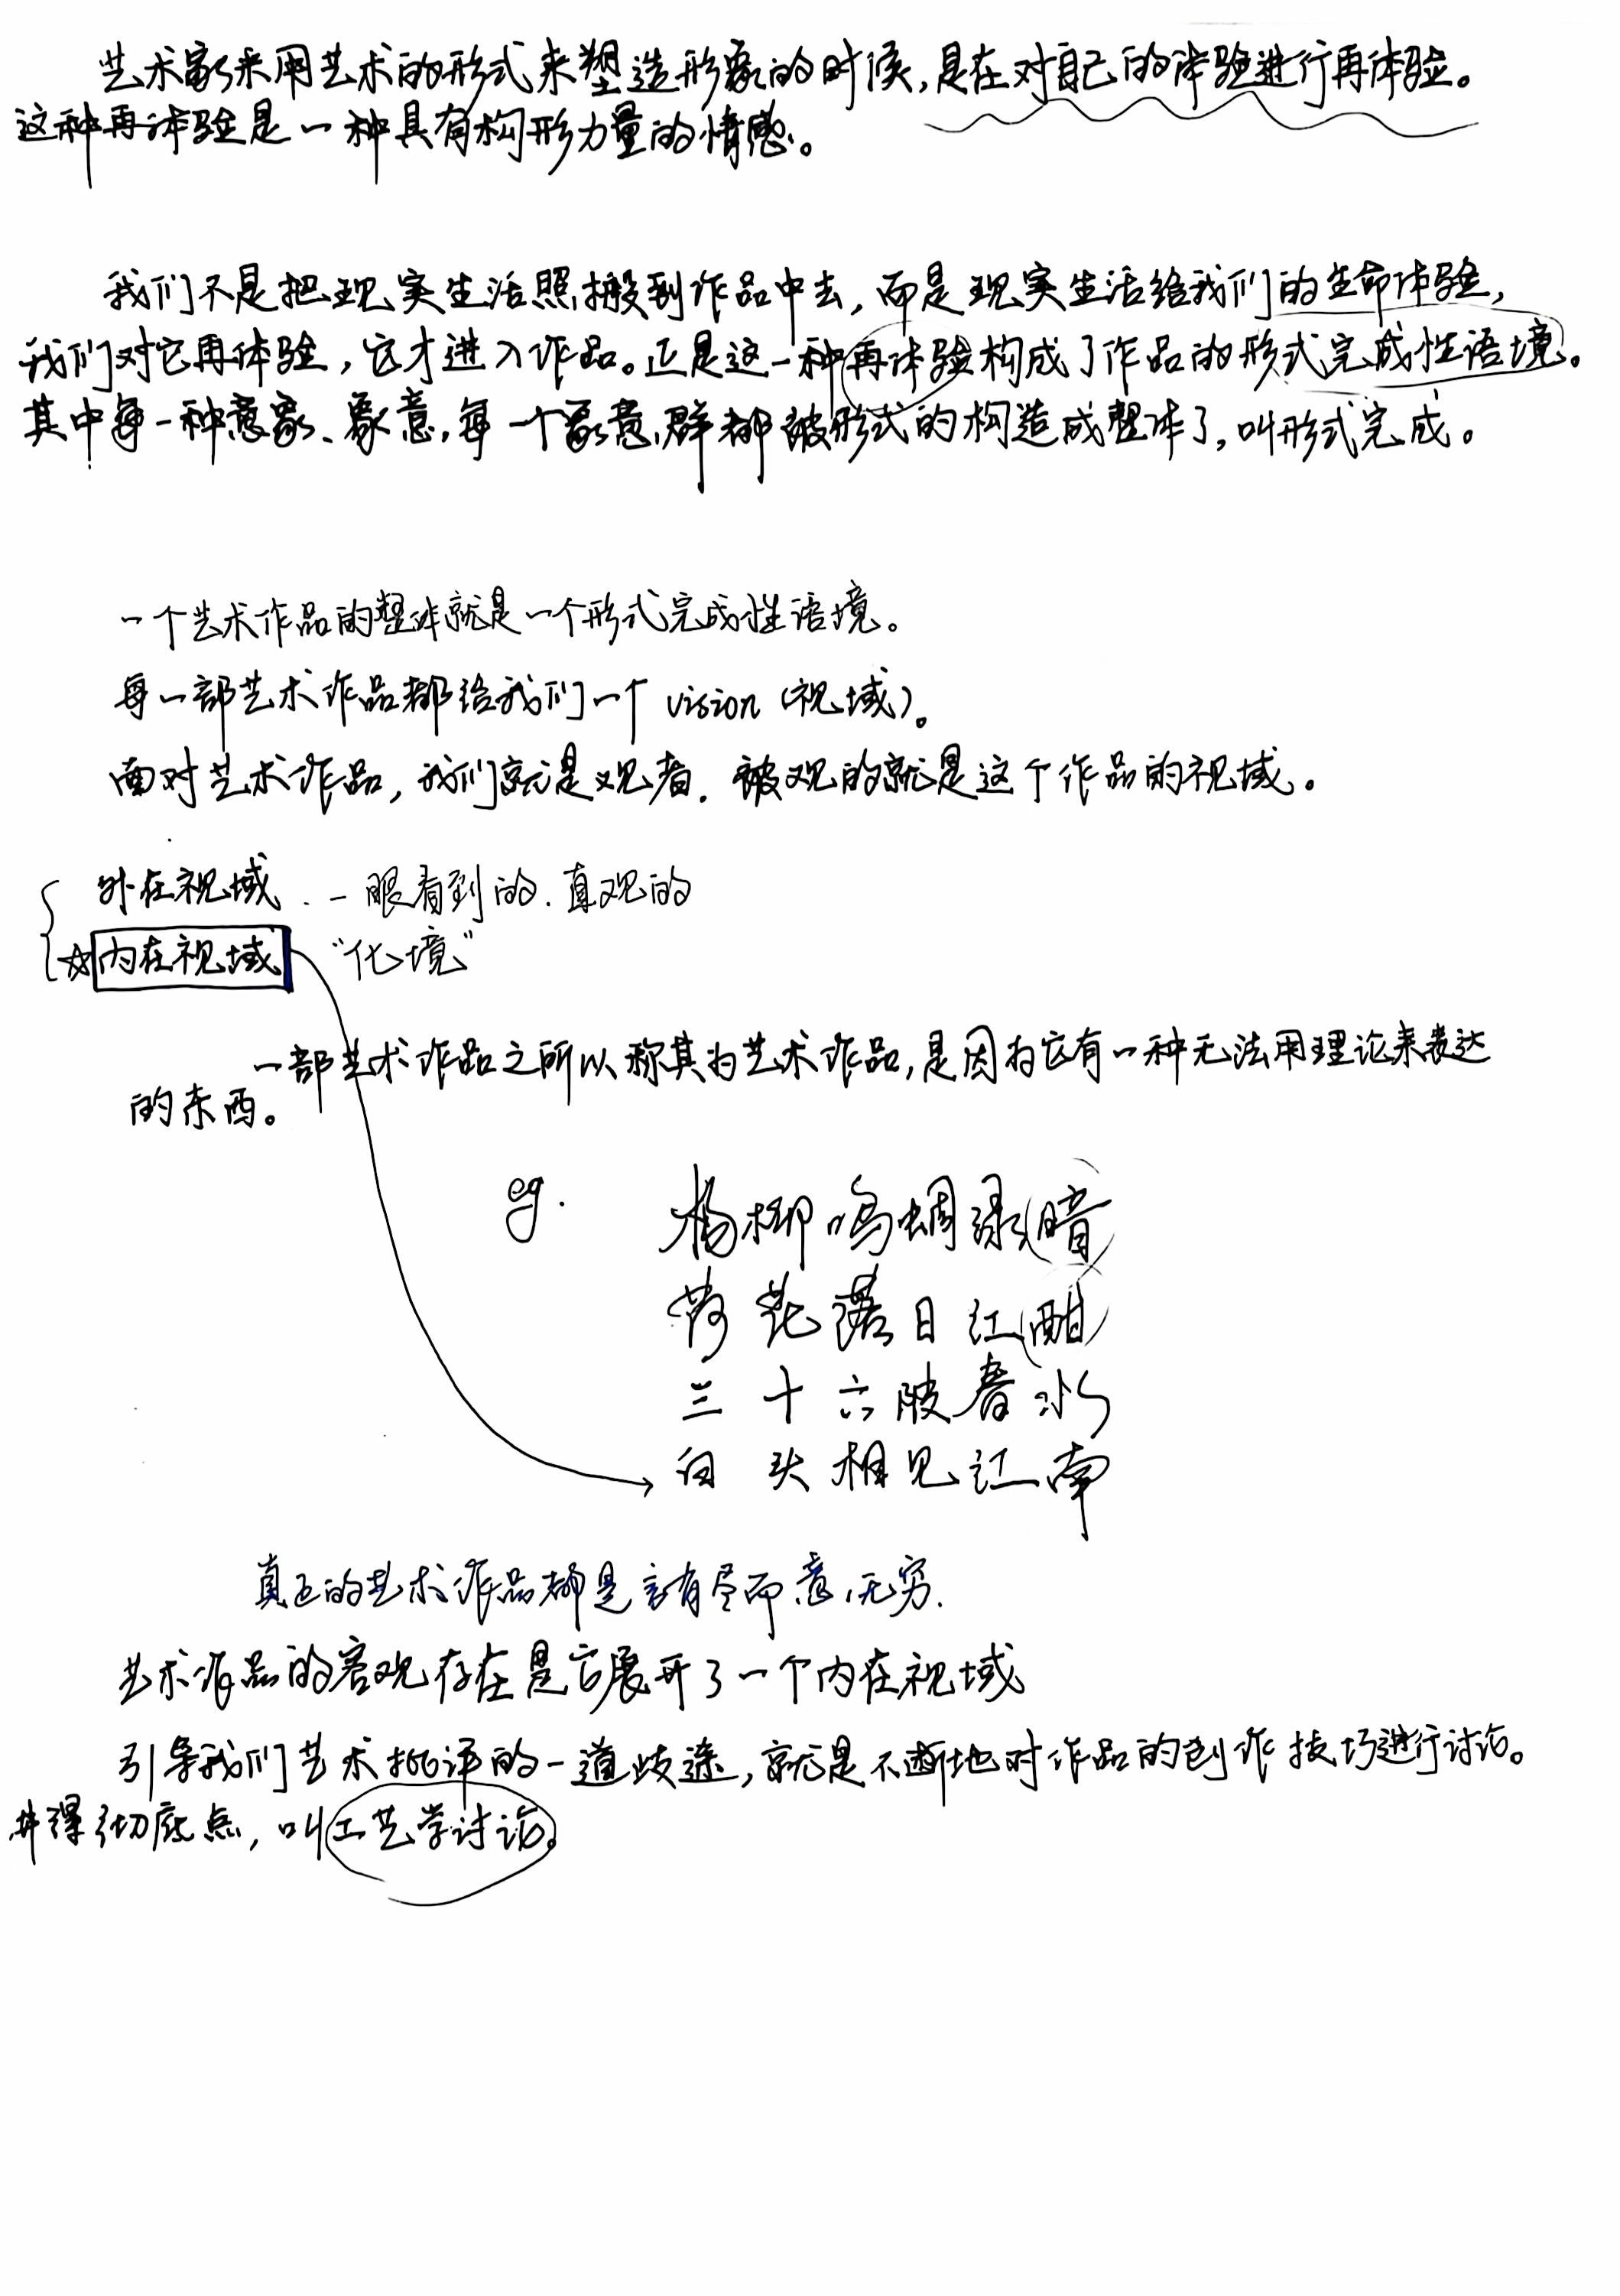 艺术家采用艺术的形式来塑造形象的时候,是在对自己的体验进行再体验。
这种再体验是一种具有构形力量的情感。
我们不是把现实生活照搬到作品中去,而是现实生活给我们的生命体验,
我们对它再体验,它才进入作品。正是这一种再体验构成了作品的形式完成性语境。
其中每一种意象、象意,每一个象意群都被形式的构造成整体了,叫形式完成。
一个艺术作品的整体就是一个形式完成性语境。
每一部艺术作品都给我们一个 vision (视域)。
面对艺术作品,我们就是观者.被观的就是这个作品的视域。
外在视域.一眼看到的.直观的
☆内在视域 “化境”
一部艺术作品之所以称其为艺术作品,是因为它有一种无法用理论来表达
的东西。
eg. 杨柳鸣蜩绿暗
荷花落日红酣
三十六陂春水
白头相见江南
真正的艺术作品都是言有尽而意无穷.
艺术作品的客观存在是它展开了一个内在视域
引导我们艺术批评的一道歧途,就是不断地对作品的创作技巧进行讨论。
讲得彻底点,叫工艺学讨论。